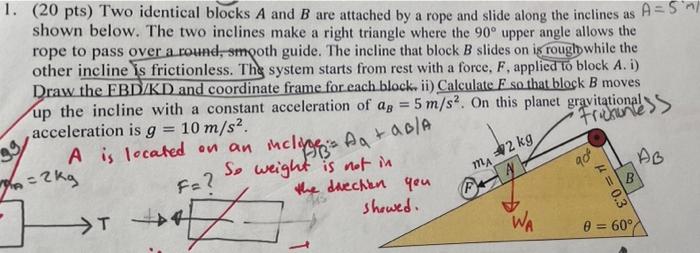 1. (20 pts) Two identical blocks A and B are attached by a rope and slide along the inclines as A = 5 m/
shown below. The two inclines make a right triangle where the 90° upper angle allows the
rope to pass over a round, smooth guide. The incline that block B slides on is rough while the
other incline is frictionless. The system starts from rest with a force, F, applied to block A. i)
Draw the FBD/KD and coordinate frame for each block. ii) Calculate F so that block B moves
up the incline with a constant acceleration of aB = 5 m/s². On this planet gravitational
acceleration is g = 10 m/s².
Frictionless
A is located on an incline.
AB = AA + aB/A
So weight is not in
the direction you
showed.
mA = 2kg
F = ?
T
mA = 2 kg
F
A
WA
90°
μ = 0.3
B
AB
θ = 60°